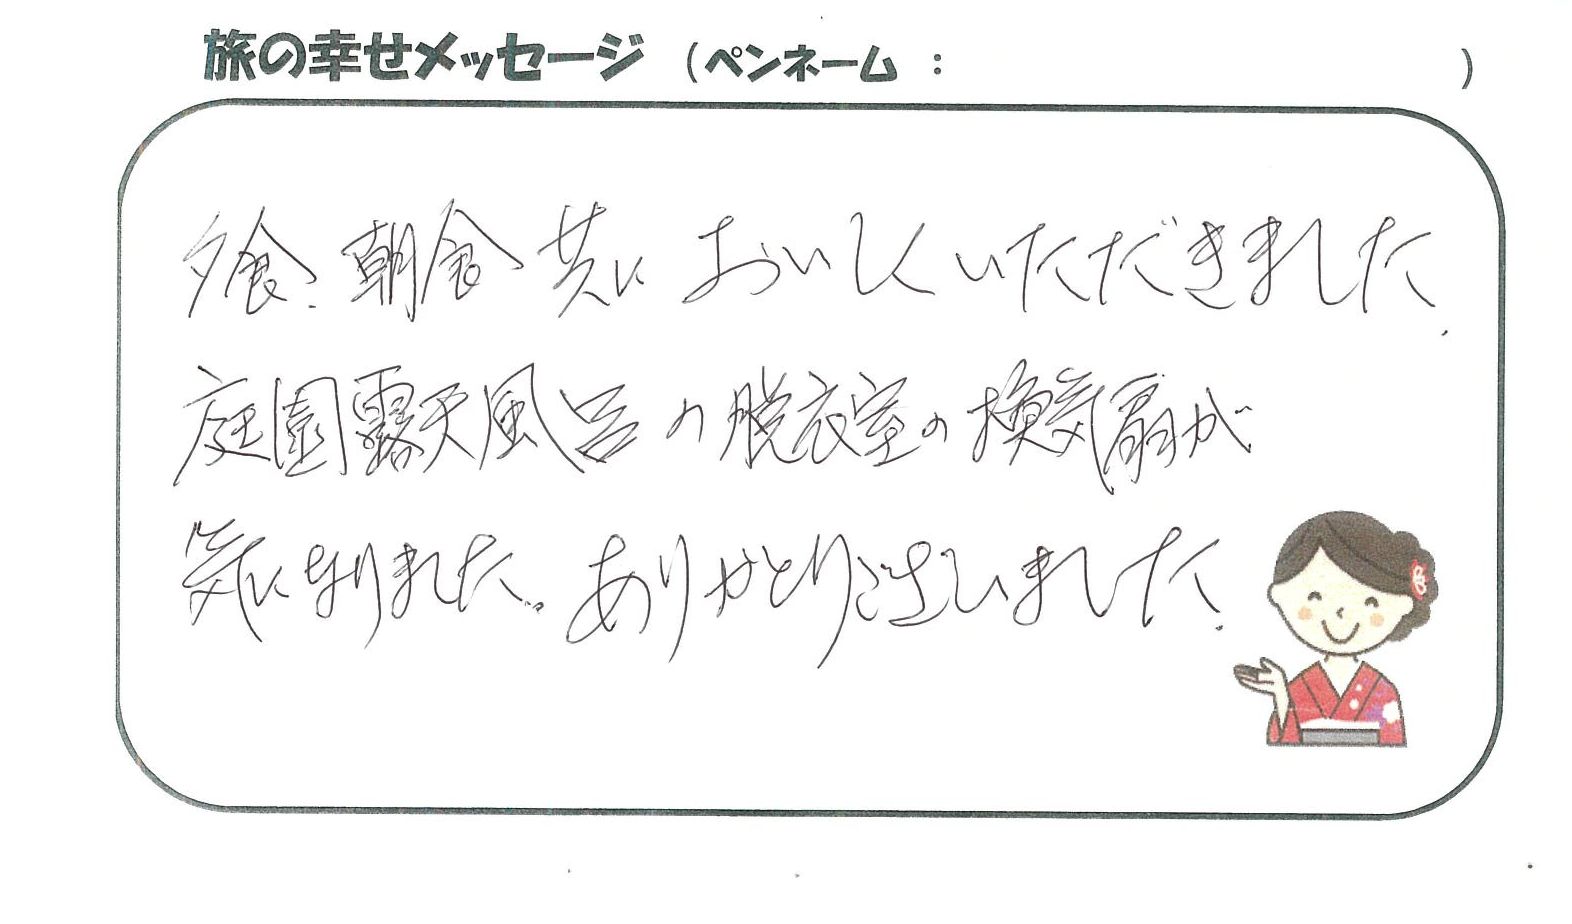 旅の幸せメッセージ (ペンネーム : )
夕食、朝食共においしくいただきました。
庭園露天風呂の脱衣室の換気扇が
気になりました。ありがとうございました。